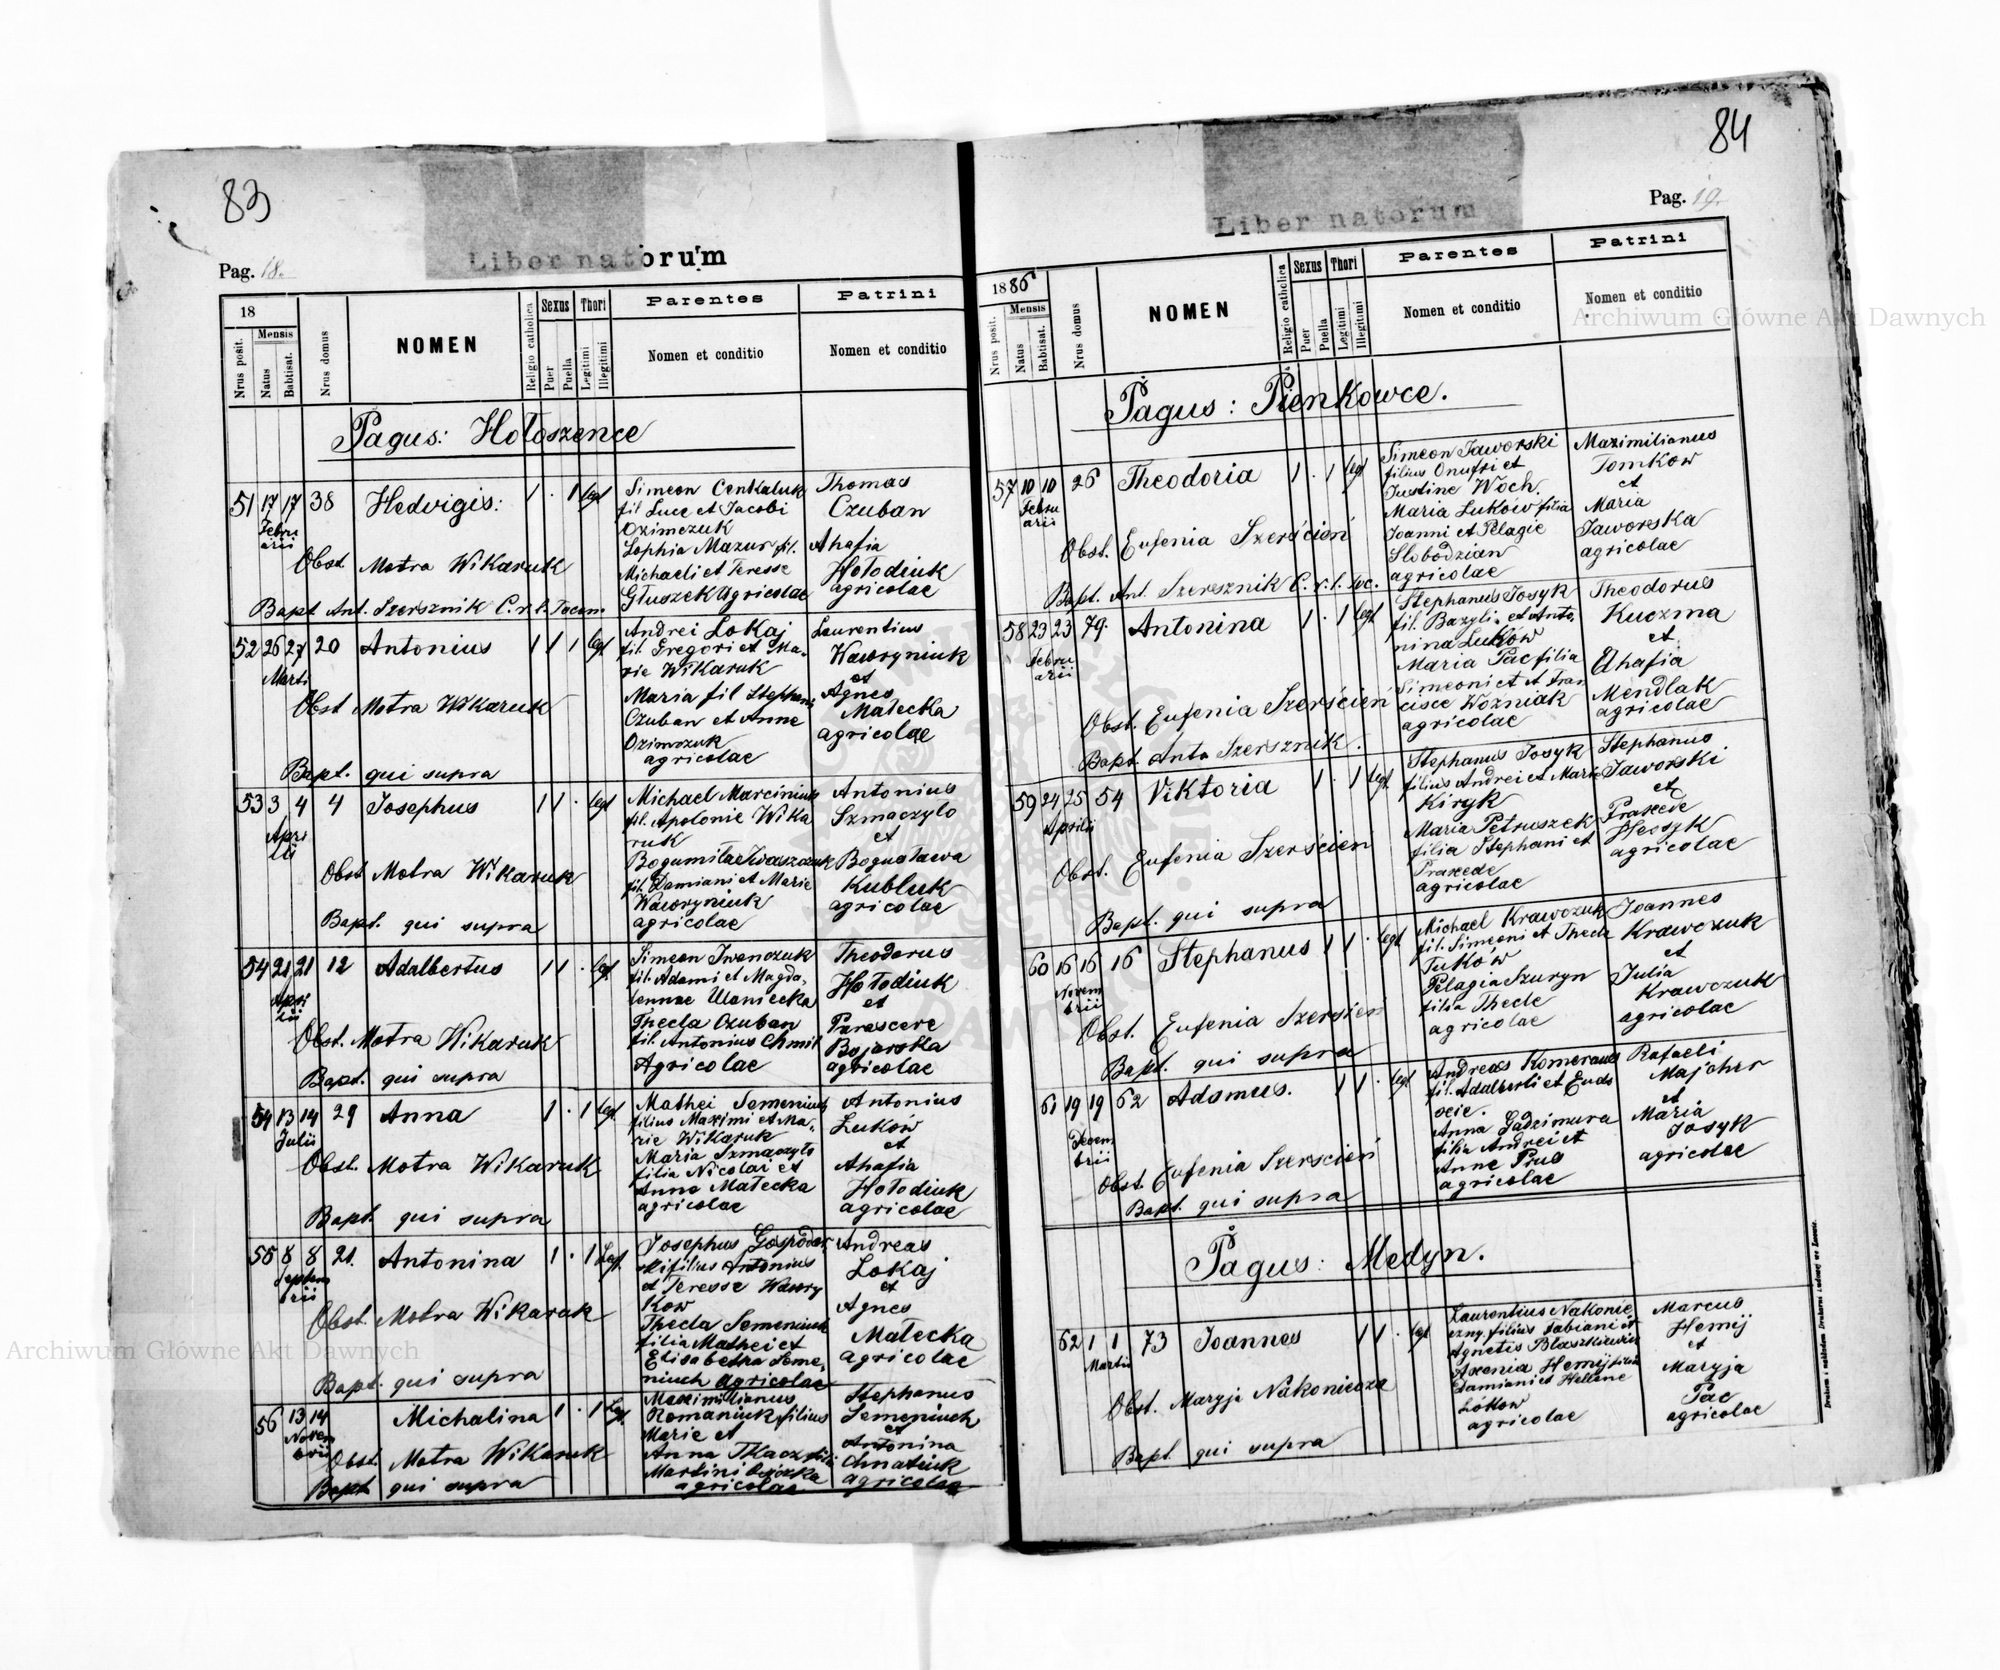 83
Pag. 18.
Liber natorum
18
Mensis
Nrus posit.
Natus
Babtisat.
Nrus domus
NOMEN
Religio catholica
Sexus
Puer
Puella
Thori
Legitimi
Illegitimi
Parentes
Nomen et conditio
Patrini
Nomen et conditio
Pagus: Hołoszence
51 17 17 38 Hedvigis: 1 . 1 legt
Febru
arii
Simeon Cenkaluk
fil Luce et Jacobi
Ozimczuk
Zophia Mazur fil.
Michaeli et Teresse
Głuszek Agricolae
Thomas
Czuban
Ahafia
Hołodiuk
agricolae
Obst. Motra Wikaruk
Bapt. Ant. Szersznik C. r. l. Tocom
52 26 27 20 Antonius 1 1 1 legt
Marti
Andrei Lokaj
fil. Gregori et Ma-
rie Wikaruk
Maria fil Stephani
Czuban et Anne
Ozimczuk
agricolae
Laurentius
Wawryniuk
et
Agnes
Małecka
agricolae
Obst Motra Wikaruk
Bapt. qui supra
53 3 4 4 Josephus 1 1 . legt
Apri
lii
Michael Marciniuk
fil. Apolonie Wika
ruk
Bogumiła Iwaszczuk
fil. Damiani et Marie
Wawryniuk
agricolae
Antonius
Szmaczylo
et
Bogusława
Kubluk
agricolae
Obst Motra Wikaruk
Bapt. qui supra
54 21 21 12 Adalbertus 1 1 . legt
Apri
lii
Simeon Iwanczuk
fil. Adami et Magda-
lennae Ulaniecka
Thecla Czuban
fil. Antonius Chmil
Agricolae
Theodorus
Hołodiuk
et
Parascere
Bojarska
agricolae
Obst. Motra Wikaruk
Bapt. qui supra
54 13 14 29 Anna 1 . 1 legt
Julii
Mathei Semeniuk
filius Maximi et Ma-
rie Wikaruk
Maria Szmaczyło
filia Nicolai et
Anne Małecka
agricolae
Antonius
Luków
et
Ahafia
Hołodiuk
agricolae
Obst. Motra Wikaruk
Bapt. qui supra
55 8 8 21. Antonina 1 . 1 Legt.
Septem
brii
Josephus Gospodar
ski filius Antonius
et Teresse Wawry
kow
Thecla Semeniuk
filia Mathei et
Elisabetha Seme-
niuch agricolae
Andreas
Lokaj
et
Agnes
Małecka
agricolae
Obst. Motra Wikaruk
Bapt. qui supra
56 13 14 Michalina 1 . 1 Legt.
Novem
brii
Maximilianus
Romaniuk filius
Marie et
Anna Tkacz filia
Martini
agricolae
Stephanus
Semeniuch
et
Antonina
Chnatiuk
agricolae
Obst. Motra Wikaruk
Bapt qui supra
84
Pag. 19.
Liber natorum
1886
Mensis
Nrus posit.
Natus
Babtisat.
Nrus domus
NOMEN
Religio catholica
Sexus
Puer
Puella
Thori
Legitimi
Illegitimi
Parentes
Nomen et conditio
Patrini
Nomen et conditio
Pagus: Pienkowce.
57 10 10 26 Theodoria 1 . 1 legt
Febru
arii
Simeon Jaworski
filius Onufri et
Justine Woch.
Maria Luków filia
Joanni et Pelagie
Slobodzian
agricolae
Maximilianus
Tomkow
et
Maria
Jaworska
agricolae
Obst. Eufenia Szerścień
Bapt. Ant. Szersznik C. r. l. loc.
58 23 23 79. Antonina 1 . 1 legt
Febru
arii
Stephanus Josyk
fil. Bazyli et Anto-
nina Luków
Maria Pac filia
Simeoni et Fran
cisce Woźniak
agricolae
Theodorus
Kuczma
et
Ahafia
Mendlak
agricolae
Obst. Eufenia Szerścień
Bapt Anto Szersznik.
59 24 25 54 Viktoria 1 . 1 legt
Aprilii
Stephanus Josyk
filius Andrei et Marie
Kiryk
Maria Petruszek
filia Stephani et
Praxede
agricolae
Stephanus
Jaworski
et
Praxede
agricolae
Obst. Eufenia Szerścień
Bapt. qui supra
60 16 16 16 Stephanus 1 1 . legt
Novem
brii
Michael Krawczuk
fil. Simeoni et Thecle
Tuków
Pelagia Szuryn
filia Thecle
agricolae
Joannes
Krawczuk
et
Julia
Krawczuk
agricolae
Obst. Eufenia Szerścień
Bapt. qui supra
61 19 19 62 Adamus. 1 1 . legt
Decem
brii
Andreas
fil. Adalberti et Eudo
ocie.
Anna Gadzimura
filia Andrei et
Anne Prus
agricolae
Rafaeli
Majcher
et
Maria
Josyk
agricolae
Obst. Eufenia Szerścień
Bapt. qui supra
Pagus: Medyn.
62 1 1 73 Joannes 1 1 . legt
Martii
Laurentius Nakonie
czny filius Fabiani et
Agnetis Błaszkiewicz
Axenia Hemij filia
Damiani et Hellene
Lókow
agricolae
Marcus
Hemij
et
Maryja
Pac
agricolae
Obst. Maryja Nakoniecza
Bapt. qui supra
Drukiem i nakładem Drukarni Ludowej we Lwowie.
Archiwum Główne Akt Dawnych
Archiwum Główne Akt Dawnych